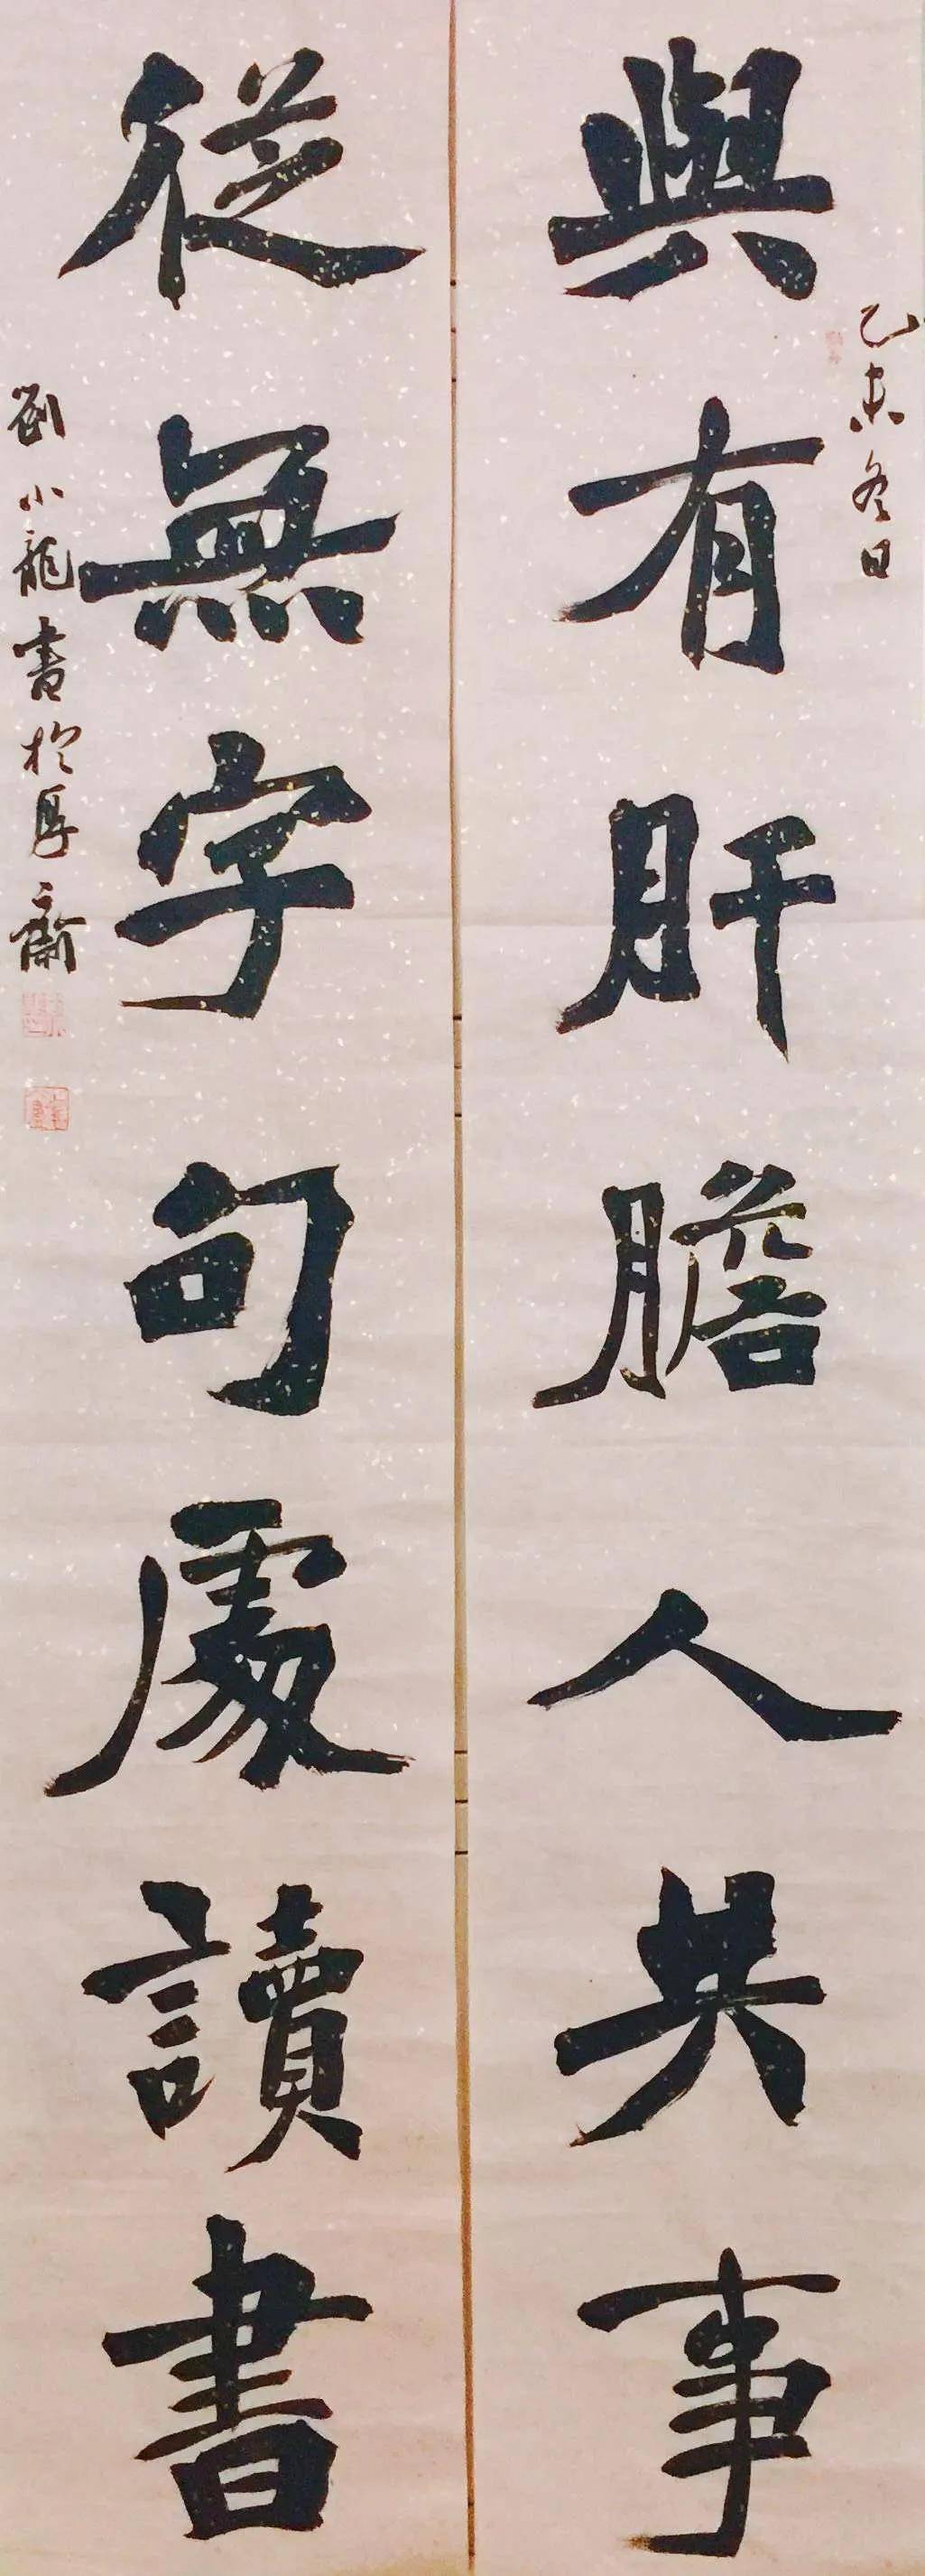 乙未冬日
與有肝膽人共事
從無字句處讀書
劉小龍書於厚齋